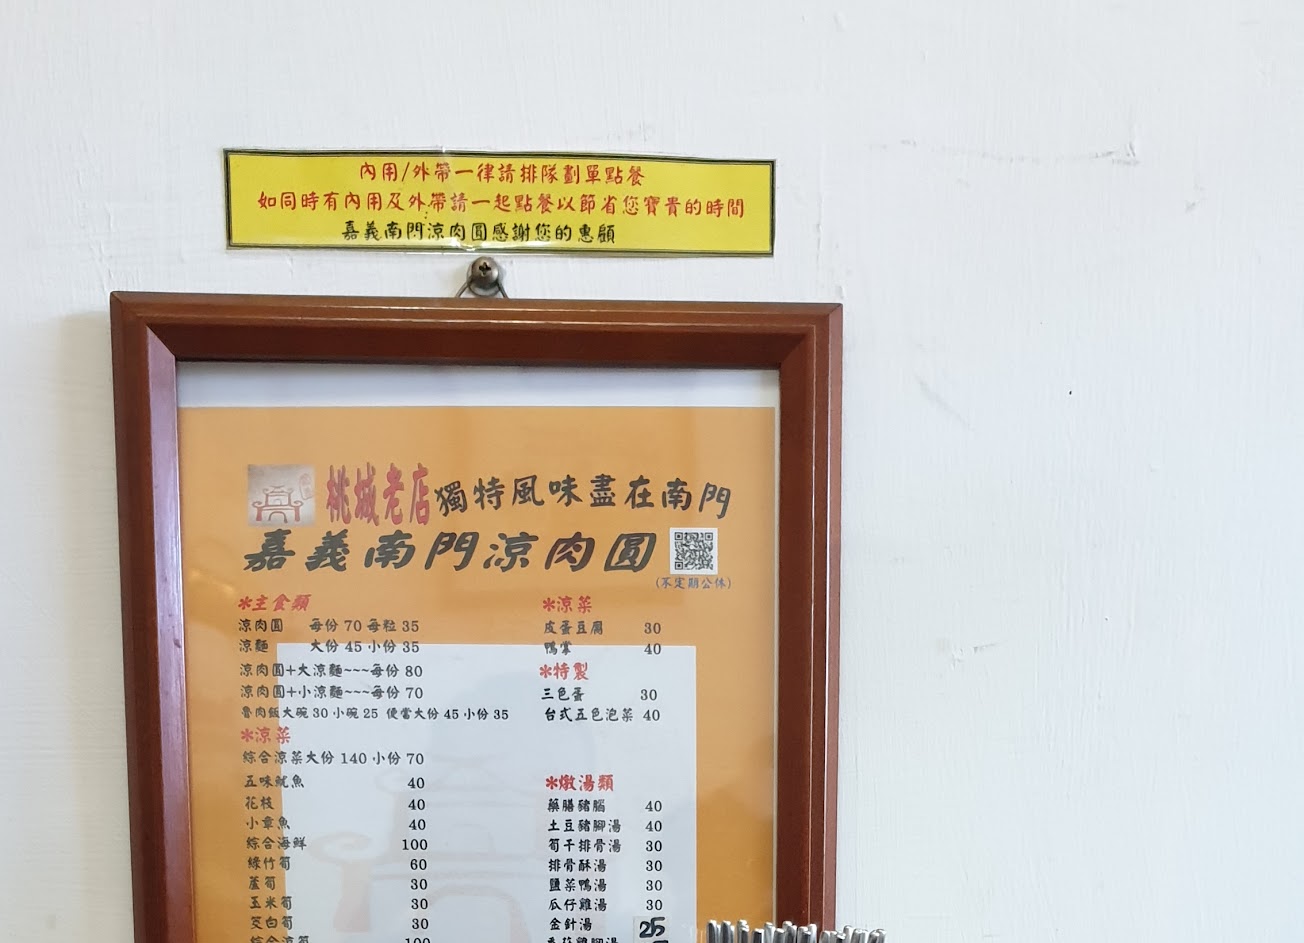 內用/外帶一律請排隊劃單點餐
如同時有內用及外帶請一起點餐以節省您寶貴的時間
嘉義南門涼肉圓感謝您的惠顧
桃城老店獨特風味盡在南門
嘉義南門涼肉圓
(不定期公休)
*主食類
涼肉圓 每份 70 每粒 35
涼麵 大份 45 小份 35
涼肉圓+大涼麵~~~每份 80
涼肉圓+小涼麵~~~每份 70
魯肉飯大碗 30 小碗 25 便當大份 45 小份 35
*涼菜
綜合涼菜大份 140 小份 70
五味魷魚 40
花枝 40
小章魚 40
綜合海鮮 100
綠竹筍 60
蘆筍 30
玉米筍 30
茭白筍 30
綜合涼筍 100
*涼菜
皮蛋豆腐 30
鴨掌 40
*特製
三色蛋 30
台式五色泡菜 40
*燉湯類
藥膳豬腦 40
土豆豬腳湯 40
筍干排骨湯 30
排骨酥湯 30
鹽菜鴨湯 30
瓜仔雞湯 30
金針湯 25
雞腳湯